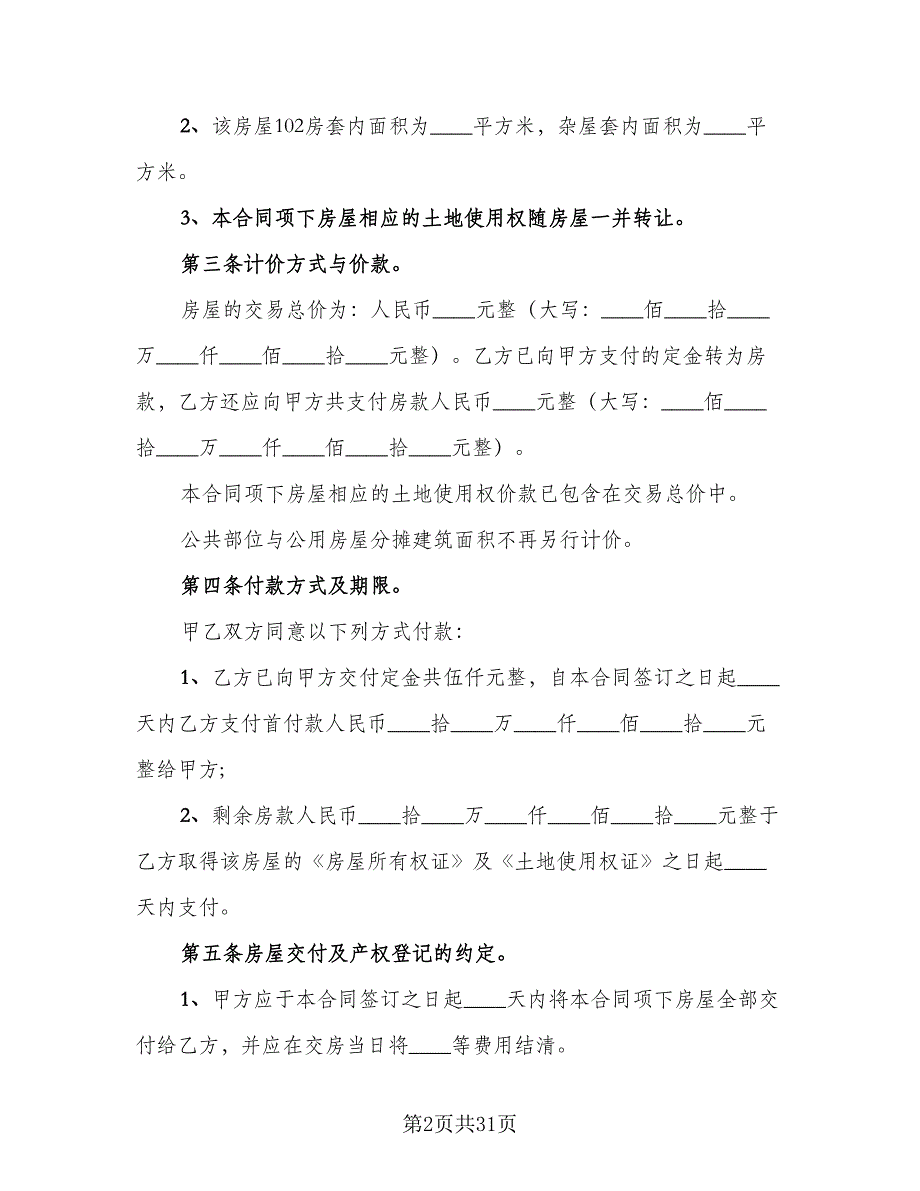 2、该房屋102房套内面积为____平方米，杂屋套内面积为____平
方米。
3、本合同项下房屋相应的土地使用权随房屋一并转让。
第三条计价方式与价款。
房屋的交易总价为：人民币____元整（大写：____佰____拾____
万____仟____佰____拾____元整）。乙方已向甲方支付的定金转为房
款，乙方还应向甲方共支付房款人民币____元整（大写：____佰____
拾____万____仟____佰____拾____元整）。
本合同项下房屋相应的土地使用权价款已包含在交易总价中。
公共部位与公用房屋分摊建筑面积不再另行计价。
第四条付款方式及期限。
甲乙双方同意以下列方式付款：
1、乙方已向甲方交付定金共伍仟元整，自本合同签订之日起____
天内乙方支付首付款人民币____拾____万____仟____佰____拾____元
整给甲方;
2、剩余房款人民币____拾____万____仟____佰____拾____元整于
乙方取得该房屋的《房屋所有权证》及《土地使用权证》之日起____
天内支付。
第五条房屋交付及产权登记的约定。
1、甲方应于本合同签订之日起____天内将本合同项下房屋全部交
付给乙方，并应在交房当日将____等费用结清。
第2页共31页